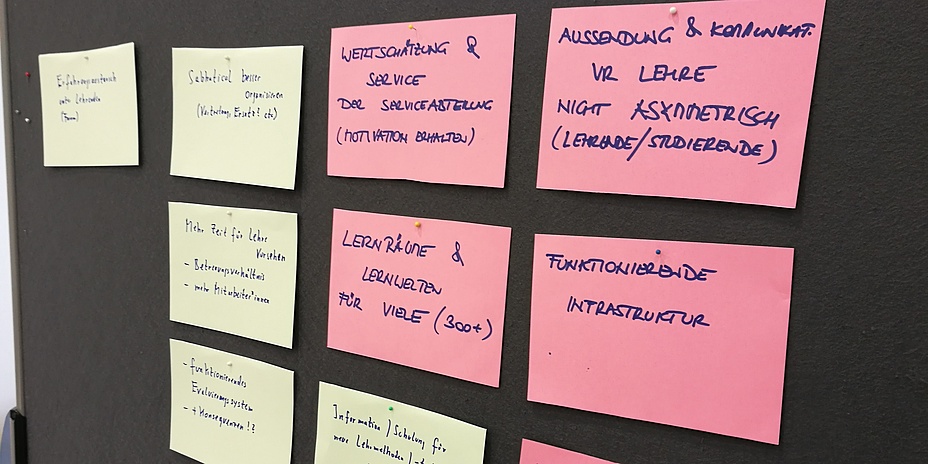 Erfahrungsaustausch
unter Lehrenden
(Forum)
Sabbatical besser
organisieren
(Vertretung, Ersatz? etc)
WERTSCHÄTZUNG &
SERVICE
DER SERVICEABTEILUNG
(MOTIVATION ERHALTEN)
AUSSENDUNG & KOMMUNIKAT.
VR LEHRE
NICHT ASYMMETRISCH
(LEHRENDE/STUDIERENDE)
Mehr Zeit für Lehre
vorsehen
- Betreuungsverhältnis
- mehr Mitarbeiter*innen
LERNRÄUME &
LERNWELTEN
FÜR VIELE (300+)
FUNKTIONIERENDE
INFRASTRUKTUR
- funktionierendes
Evaluierungssystem
- + Konsequenzen!?
Information / Schulung für
neue Lehrmethoden /